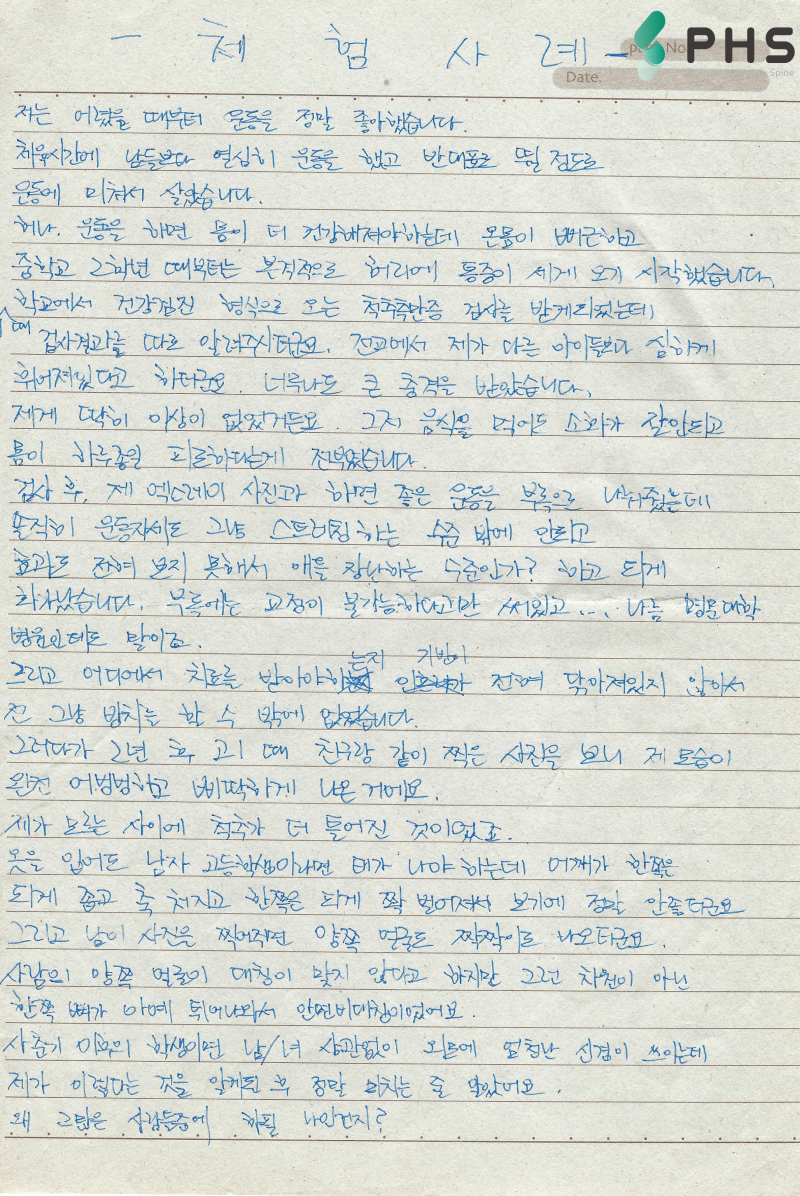 - 체 험 사 례 -
PHS
Spine
No
Date.
저는 어렸을 때부터 운동을 정말 좋아했습니다.
체육시간에 남들보다 열심히 운동을 했고 반대표로 뛸 정도로
운동에 미쳐서 살았습니다.
허나, 운동을 하면 몸이 더 건강해져야하는데 온몸이 뻐근하고
중학교 2학년 때부터는 본격적으로 허리에 통증이 세게 오기 시작했습니다.
학교에서 건강검진 형식으로 오는 척추측만증 검사를 받게되었는데
때 검사결과를 따로 알려주시더군요. 전교에서 제가 다른 아이들보다 심하게
휘어져있다고 하더군요. 너무나도 큰 충격을 받았습니다.
제게 딱히 이상이 없었거든요. 그저 음식을 먹어도 소화가 잘안되고
몸이 하루종일 피로하다는게 전부였습니다.
검사 후, 제 엑스레이 사진과 하면 좋은 운동을 부록으로 나눠줬는데
솔직히 운동자세도 그냥 스트레칭하는 수준 밖에 안되고
효과도 전혀 보지 못해서 애들 장난하는 수준인가? 하고 되게
화가났습니다. 부록에는 교정이 불가능하다고만 써있고... 나름 명문대학
병원인데도 말이죠.
그리고 어디에서 치료를 받아야하는지 기반이 전혀 닦아져있지 않아서
전 그냥 방치는 할 수 밖에 없었습니다.
그러다가 2년 후 고1 때 친구랑 같이 찍은 사진을 보니 제 모습이
완전 어벙벙하고 삐딱하게 나온거에요.
제가 모르는 사이에 척추가 더 틀어진 것이었죠.
옷을 입어도 남자 고등학생이라면 태가 나야하는데 어깨가 한쪽은
되게 좁고 축 쳐지고 한쪽은 되게 쫙 벌어져서 보기에 정말 안좋더군요
그리고 남이 사진을 찍어주면 양쪽 얼굴도 짝짝이로 나오더군요.
사람의 양쪽 얼굴이 대칭이 맞지 않다고 하지만 그런 차원이 아닌
한쪽 뼈가 아예 튀어나와서 안면비대칭이었어요.
사춘기 이후의 학생이면 남/녀 상관없이 외모에 엄청난 신경이 쓰이는데
제가 이렇다는 것을 알게된 후 정말 미치는 줄 알았어요.
왜 그많은 사람들중에 하필 나인건지?